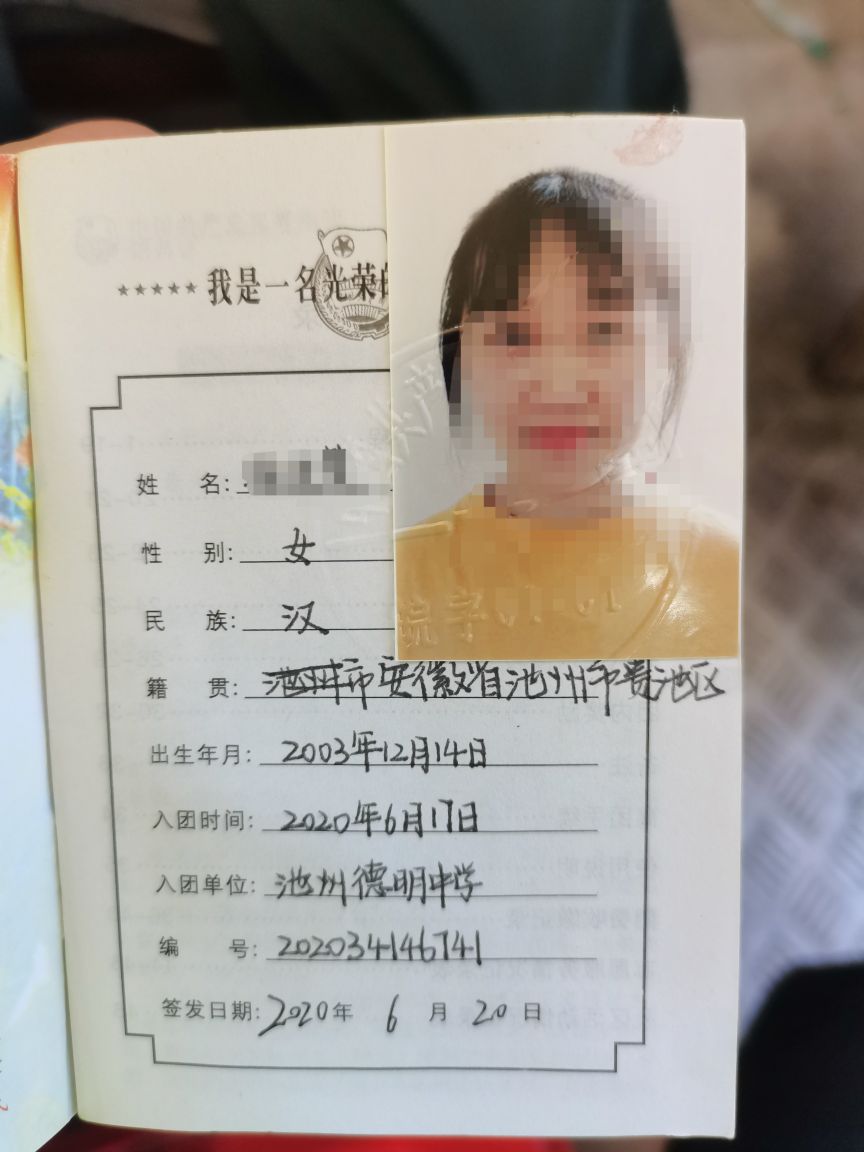 ★★★★★ 我是一名光荣的
姓 名:
性 别: 女
民 族: 汉
籍 贯: 市安徽省池州市贵池区
出生年月: 2003年12月14日
入团时间: 2020年6月17日
入团单位: 池州德明中学
编 号: 202034146741
签发日期: 2020年 6 月 20 日
皖字01-01